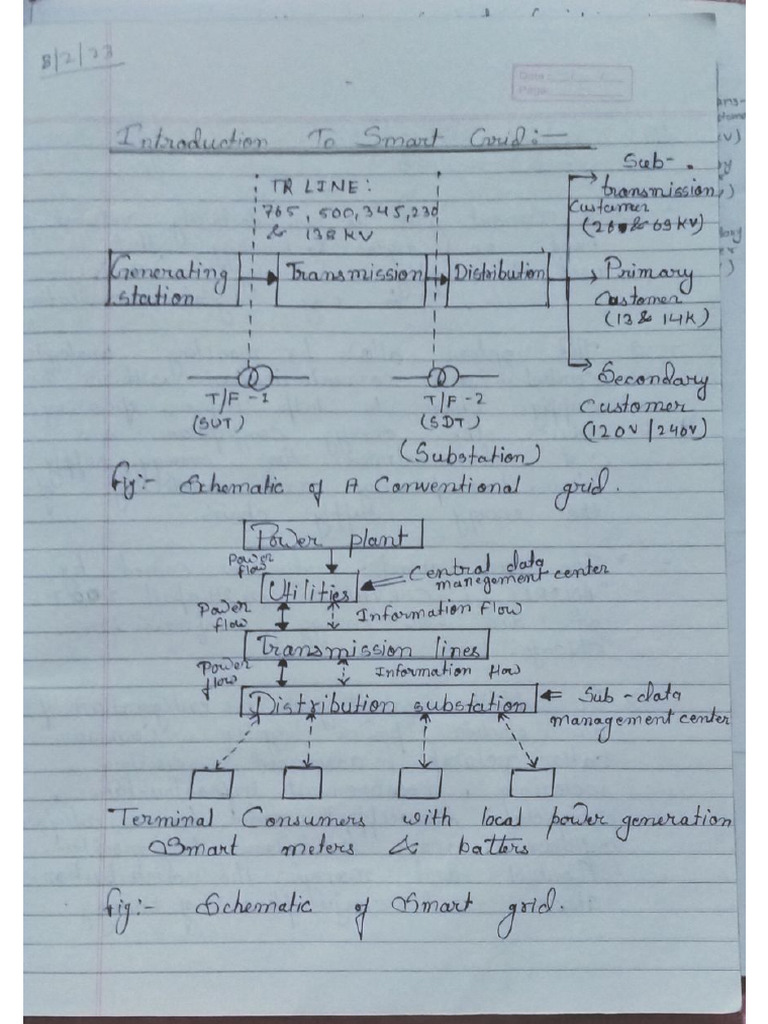 8/2/23
Date
Page
Introduction To Smart Grid:-
TR LINE:
765, 500, 345, 230
& 138 KV
Sub-
transmission
Customer
(26 & 69 KV)
Generating
station
Transmission
Distribution
Primary
Customer
(13 & 14K)
T/F-1
(SUT)
T/F-2
(SDT)
(Substation)
Secondary
Customer
(120V/240V)
Fig:- Schematic of A Conventional grid.
Power plant
Power
flow
Utilities
Central data
management center
Power
flow
Information Flow
Transmission lines
Power
flow
Information flow
Distribution substation
Sub-data
management center
Terminal Consumers with local power generation
Smart meters & batters
Fig:- Schematic of Smart grid.